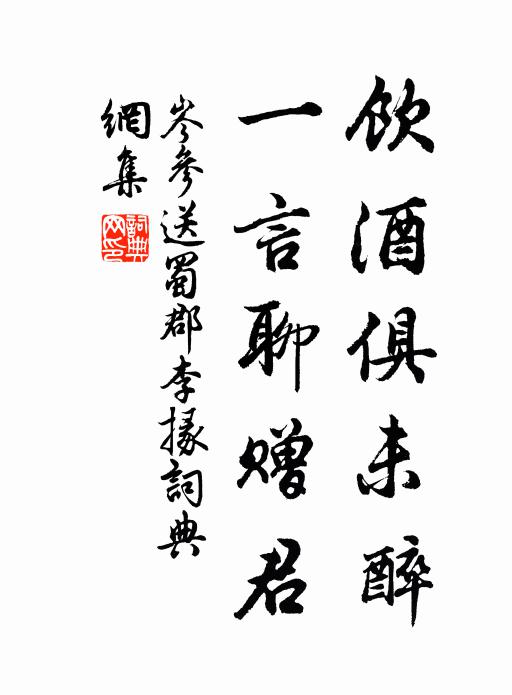 飲酒俱未醉
一言聊贈君
岑參送蜀郡李掾詞典
網集
詞典
网印